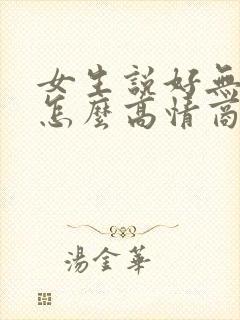 女生說好無
怎麼高情商
湯金華